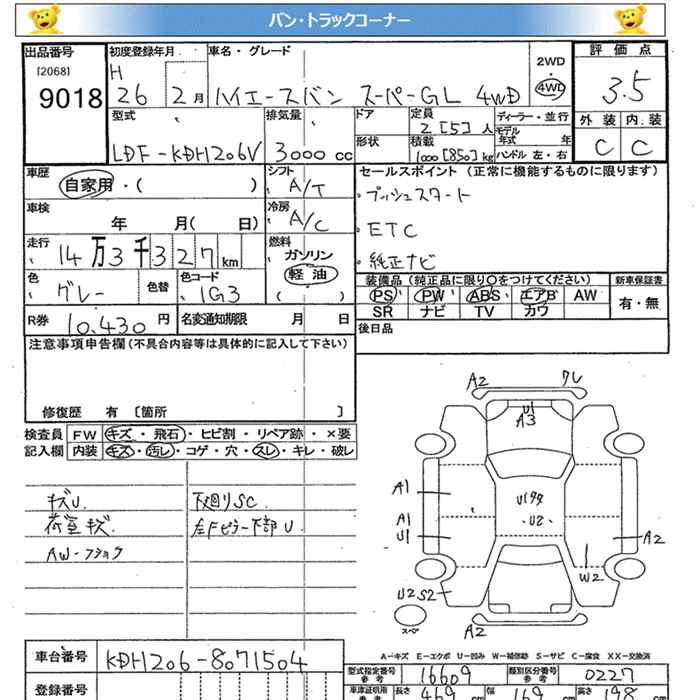 バン・トラックコーナー
出品番号 初度登録年月 車名・グレード 2WD 評価点
[2068] H
9018 26 2月 ハイエースバン スーパーGL 4WD 4WD 3.5
型式 排気量 ドア 定員 ディーラー・並行 外装 内装
2 [5] 人 モデル年式 年
LDF-KDH206V 3000 cc 形状 積載 1000 [850] kg ハンドル 左・右 C C
車歴 シフト セールスポイント (正常に機能するものに限ります)
自家用・( ) A/T ・プッシュスタート
車検 冷房
年 月( 日) A/C ・ETC
走行 燃料
14万3千327km ガソリン ・純正ナビ
色 色替 色コード 軽油 装備品 (純正品に限り〇をつけてください) 新車保証書
グレー 1G3 ( ) PS PW ABS エアB AW 有・無
R券 10,430円 名変通知期限 月 日 SR ナビ TV カワ
注意事項申告欄(不具合内容等は具体的に記入して下さい) 後日品
修復歴 有 [箇所 ]
検査員 FW キズ・飛石・ヒビ割・リペア跡・×要
記入欄 内装 キズ・汚レ・コゲ・穴・スレ・キレ・破レ
キズU. 下回りSC.
荷室キズ. 左Fピラー下部U.
A2 ワレ
U1
A3
A1
U2
A1
U1 A2
W2
U2 S2
スペア
A2
A-キズ E-エクボ U-凹み W-補修跡 S-サビ C-腐食 XX-交換済
車台番号 KDH206-8071504 型式指定番号 参考 16609 類別区分番号 参考 0227
登録番号 車庫証明用 参考 長さ 469 cm 幅 169 cm 高さ 198 cm